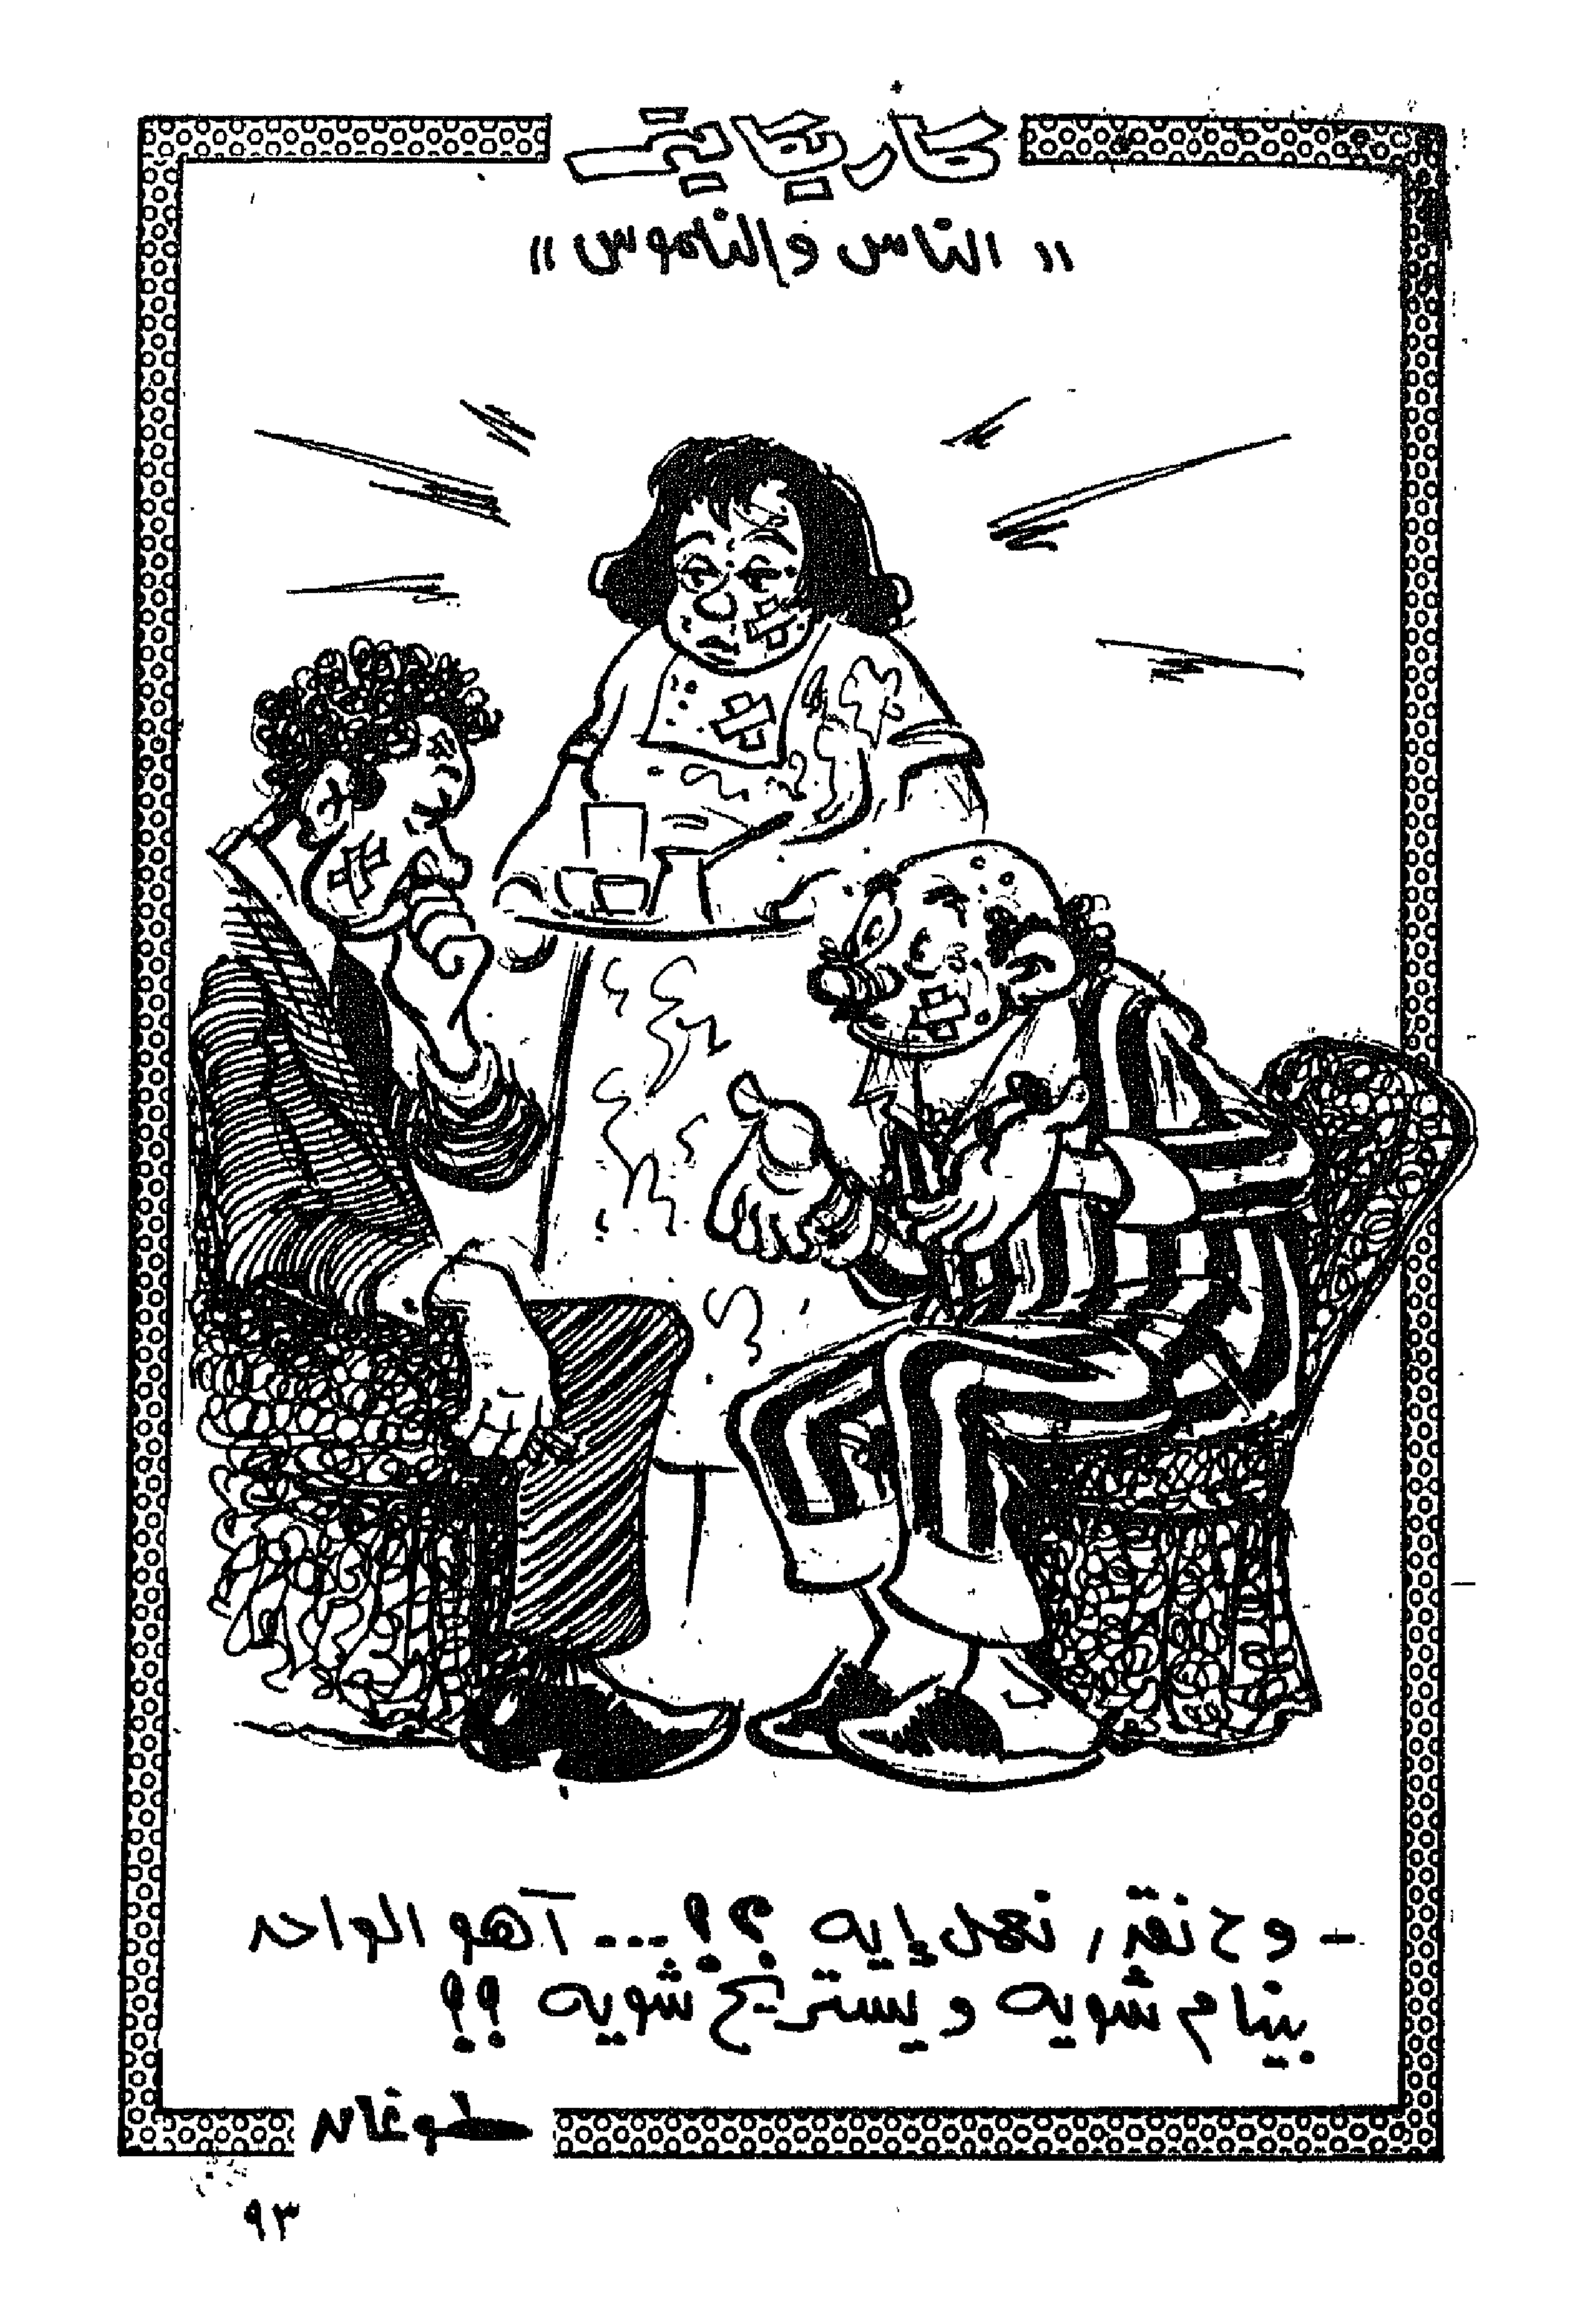 كاريكاتير
" الناس والناموس "
- وح نقدر نعمل إيه ؟؟... آهو الواحد
بينام شويه و يستريح شويه ؟؟
طوغان
٩٣